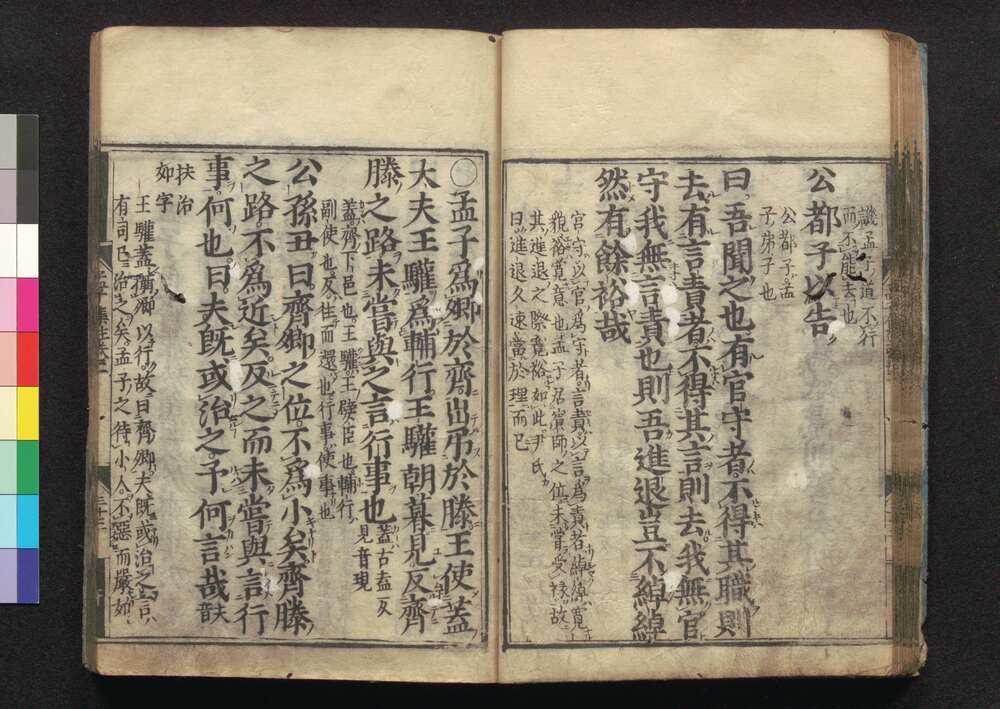 譏孟子道不行
而不能去也
公都子以告
公都子孟
子弟子也
曰吾聞之也有官守者不得其職則
去有言責者不得其言則去我無官
守我無言責也則吾進退豈不綽綽
然有餘裕哉
官守以官為守者言責以言為責者綽綽寬
貌裕寬意也孟子居賓師之位未嘗受祿故
其進退之際寬裕如此尹氏
曰進退久速當於理而已
○孟子為卿於齊出弔於滕王使蓋
大夫王驩為輔行王驩朝暮見反齊
滕之路未嘗與之言行事也
蓋古盍反
見音現
蓋齊下邑也王驩王嬖臣也輔行
副使也反往而還也行事使事也
公孫丑曰齊卿之位不為小矣齊滕
之路不為近矣反之而未嘗與言行
事何也曰夫既或治之予何言哉
夫音
扶治
如字
王驩蓋攝卿以行故曰齊卿夫既或治之言
有司已治之矣孟子之待小人不惡而嚴如